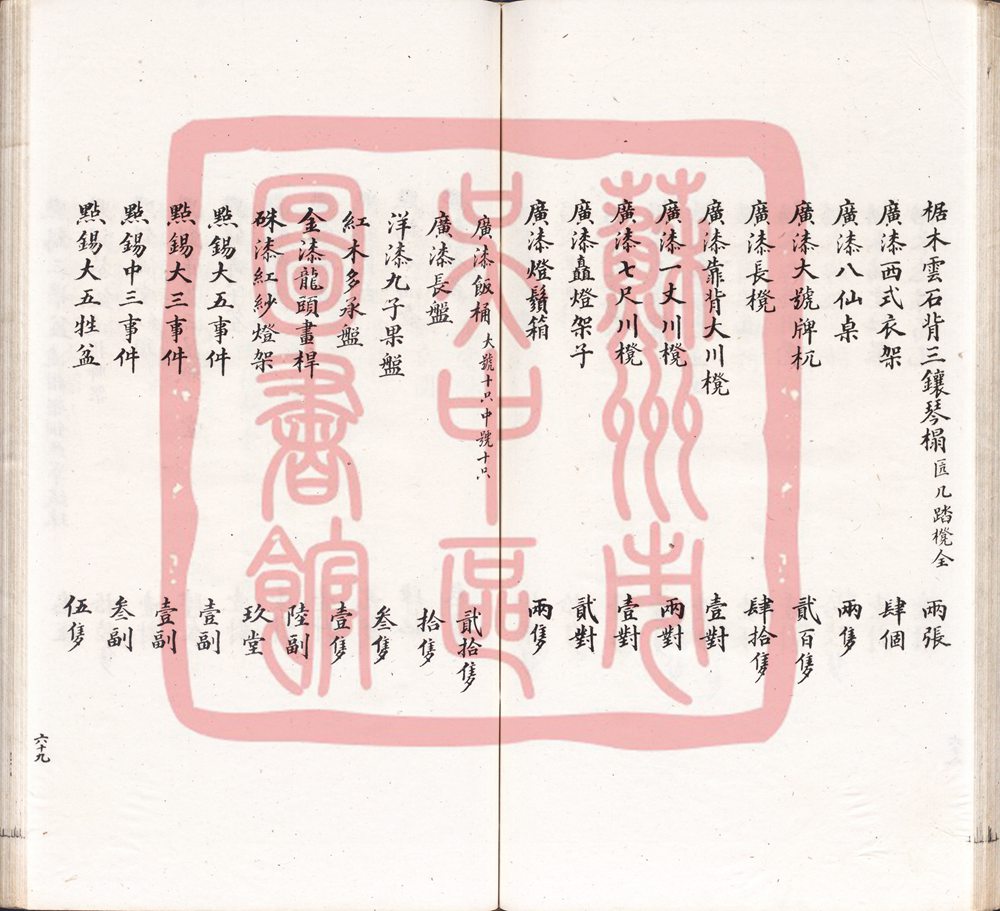 椐木雲石背三鑲琴榻 匟几踏櫈全 兩張
廣漆西式衣架 肆個
廣漆八仙桌 兩隻
廣漆大號牌杌 貳百隻
廣漆長櫈 肆拾隻
廣漆靠背大川櫈 壹對
廣漆一丈川櫈 兩對
廣漆七尺川櫈 壹對
廣漆矗燈架子 貳對
廣漆燈鬚箱 兩隻
廣漆飯桶 大號十只中號十只 貳拾隻
廣漆長盤 拾隻
洋漆九子果盤 叁隻
紅木多承盤 壹隻
金漆龍頭畫桿 陸副
硃漆紅紗燈架 玖堂
點錫大五事件 壹副
點錫大三事件 壹副
點錫中三事件 叁副
點錫大五牲盆 伍隻
六十九
蘇州市
中區
圖書館